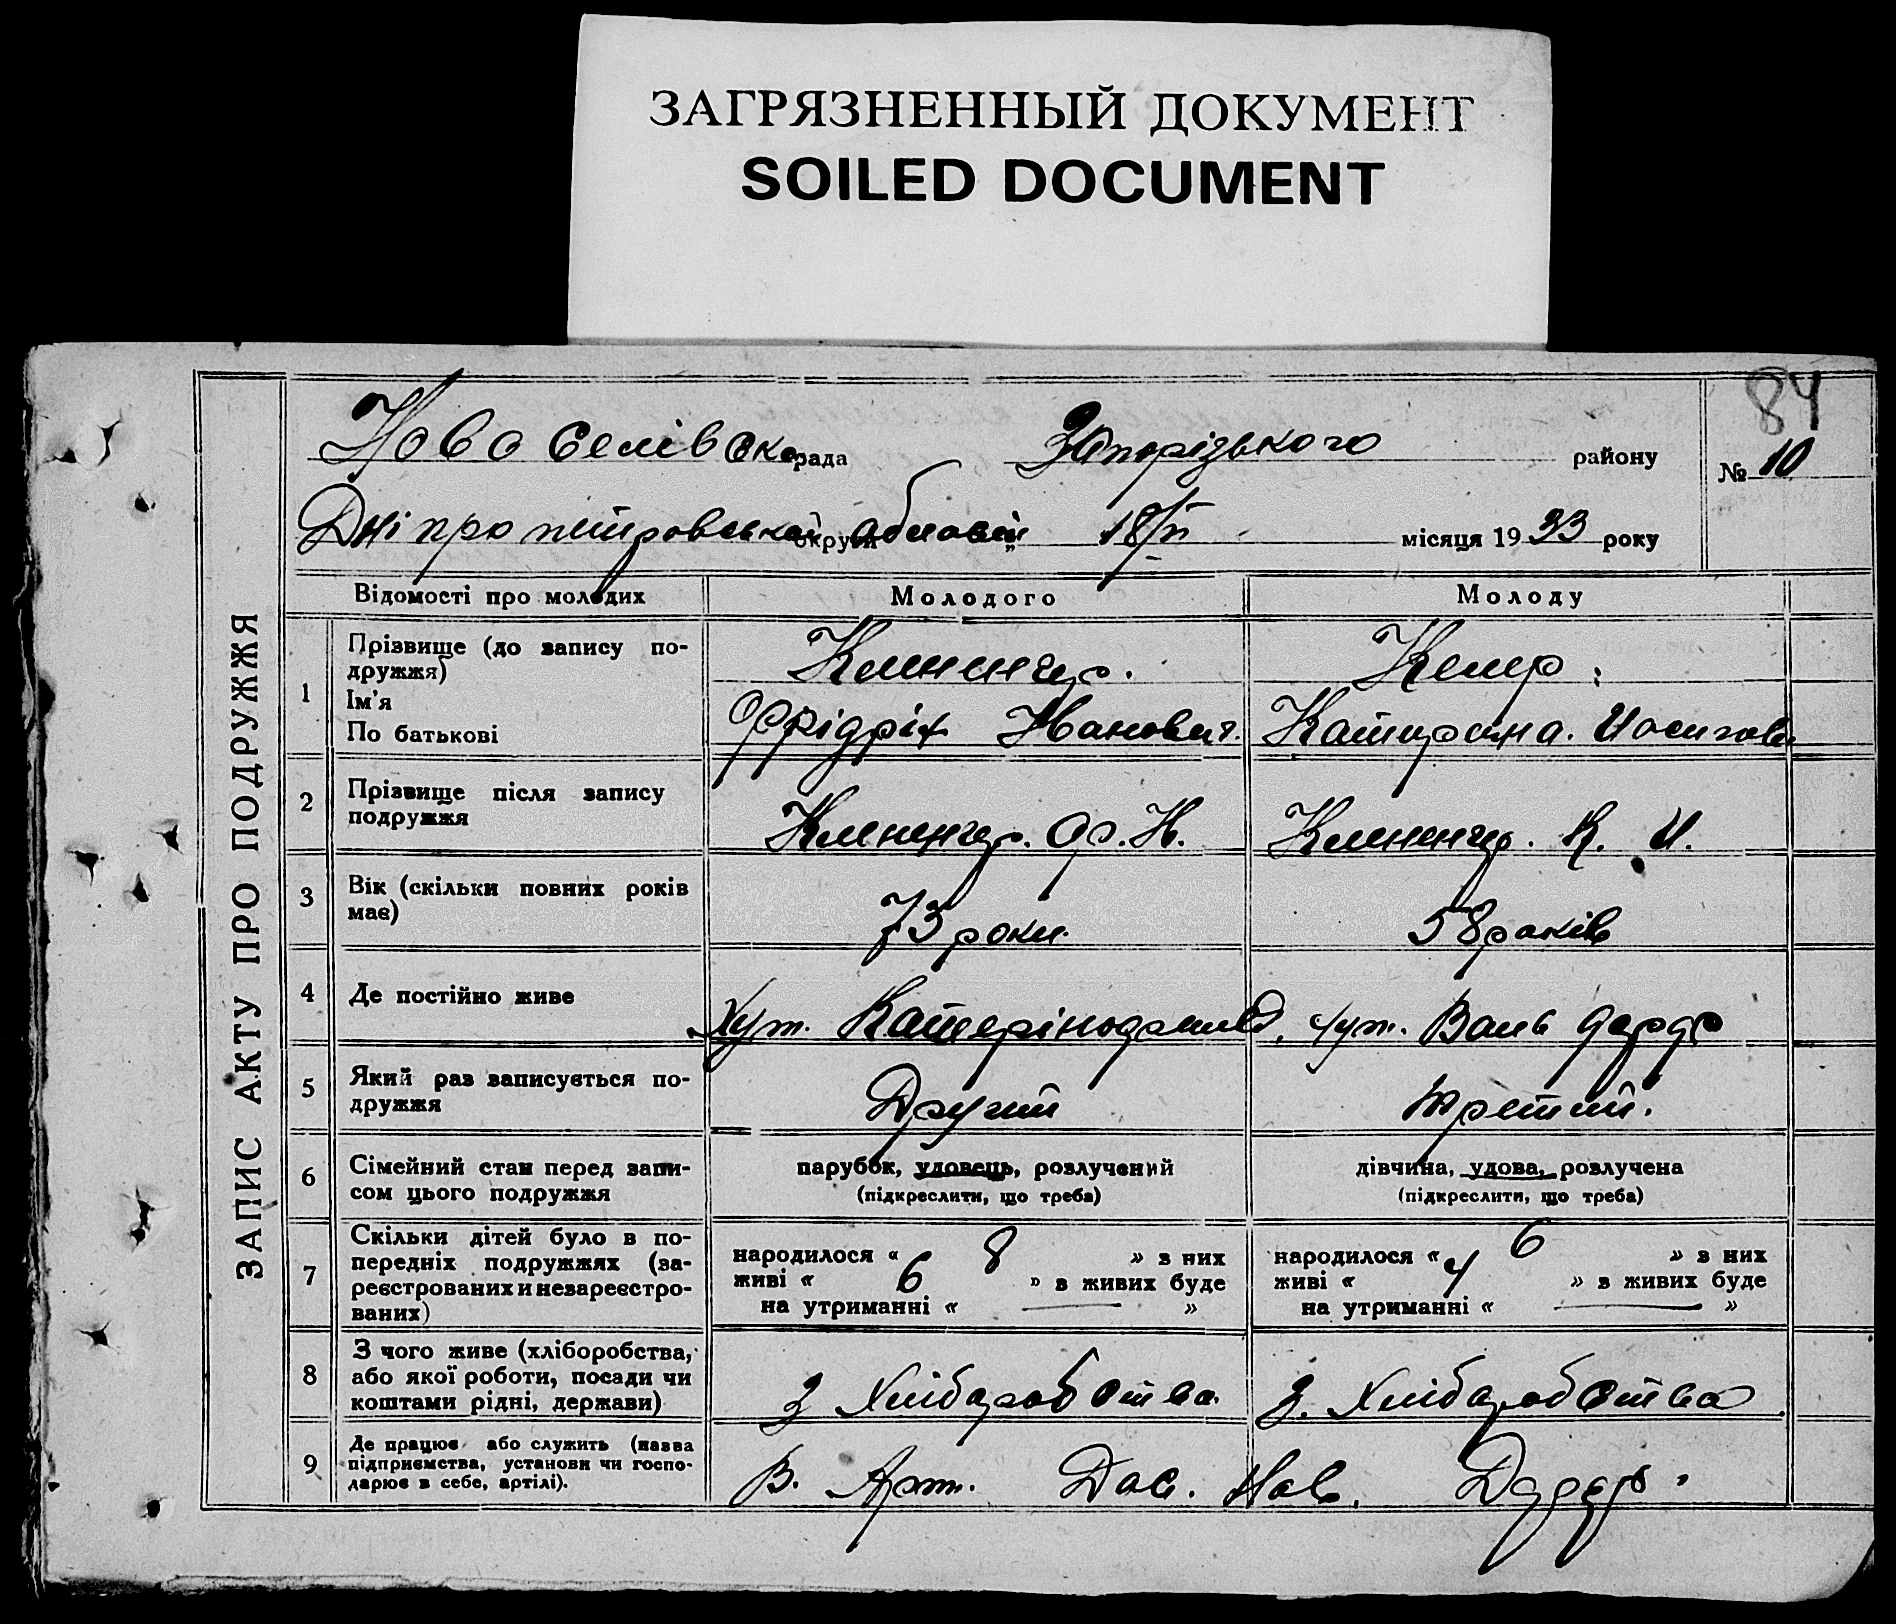 ЗАГРЯЗНЕННЫЙ ДОКУМЕНТ
SOILED DOCUMENT
84
Ново Селівска рада Запорізького району № 10
Дніпропетровської округи області „ 18/VI місяця 1933 року
ЗАПИС АКТУ ПРО ПОДРУЖЖЯ
Відомості про молодих Молодого Молоду
1 Прізвище (до запису по-
дружжя)
Ім'я
По батькові
Келер
Фрідріх Иванович. Катирина.
2 Прізвище після запису
подружжя
Фр. И. К. И.
3 Вік (скільки повних років
має)
73 роки. 58 років
4 Де постійно живе
Хут. хут.
5 Який раз записується по-
дружжя
Другий третий.
6 Сімейний стан перед запи-
сом цього подружжя
парубок, удовець, розлучений
(підкреслити, що треба)
дівчина, удова, розлучена
(підкреслити, що треба)
7 Скільки дітей було в по-
передніх подружжях (за-
реєстрованих и незареєстро-
ваних)
народилося « 8 » з них
живі « 6 » в живих буде
на утриманні « — »
народилося « 6 » з них
живі « 4 » в живих буде
на утриманні « — »
8 З чого живе (хліборобства,
або якої роботи, посади чи
коштами рідні, держави)
з Хлібаробства. з. Хлібаробства
9 Де працює або служить (назва
підприємства, установи чи госпо-
дарює в себе, артілі).
В. Арт. Нов.